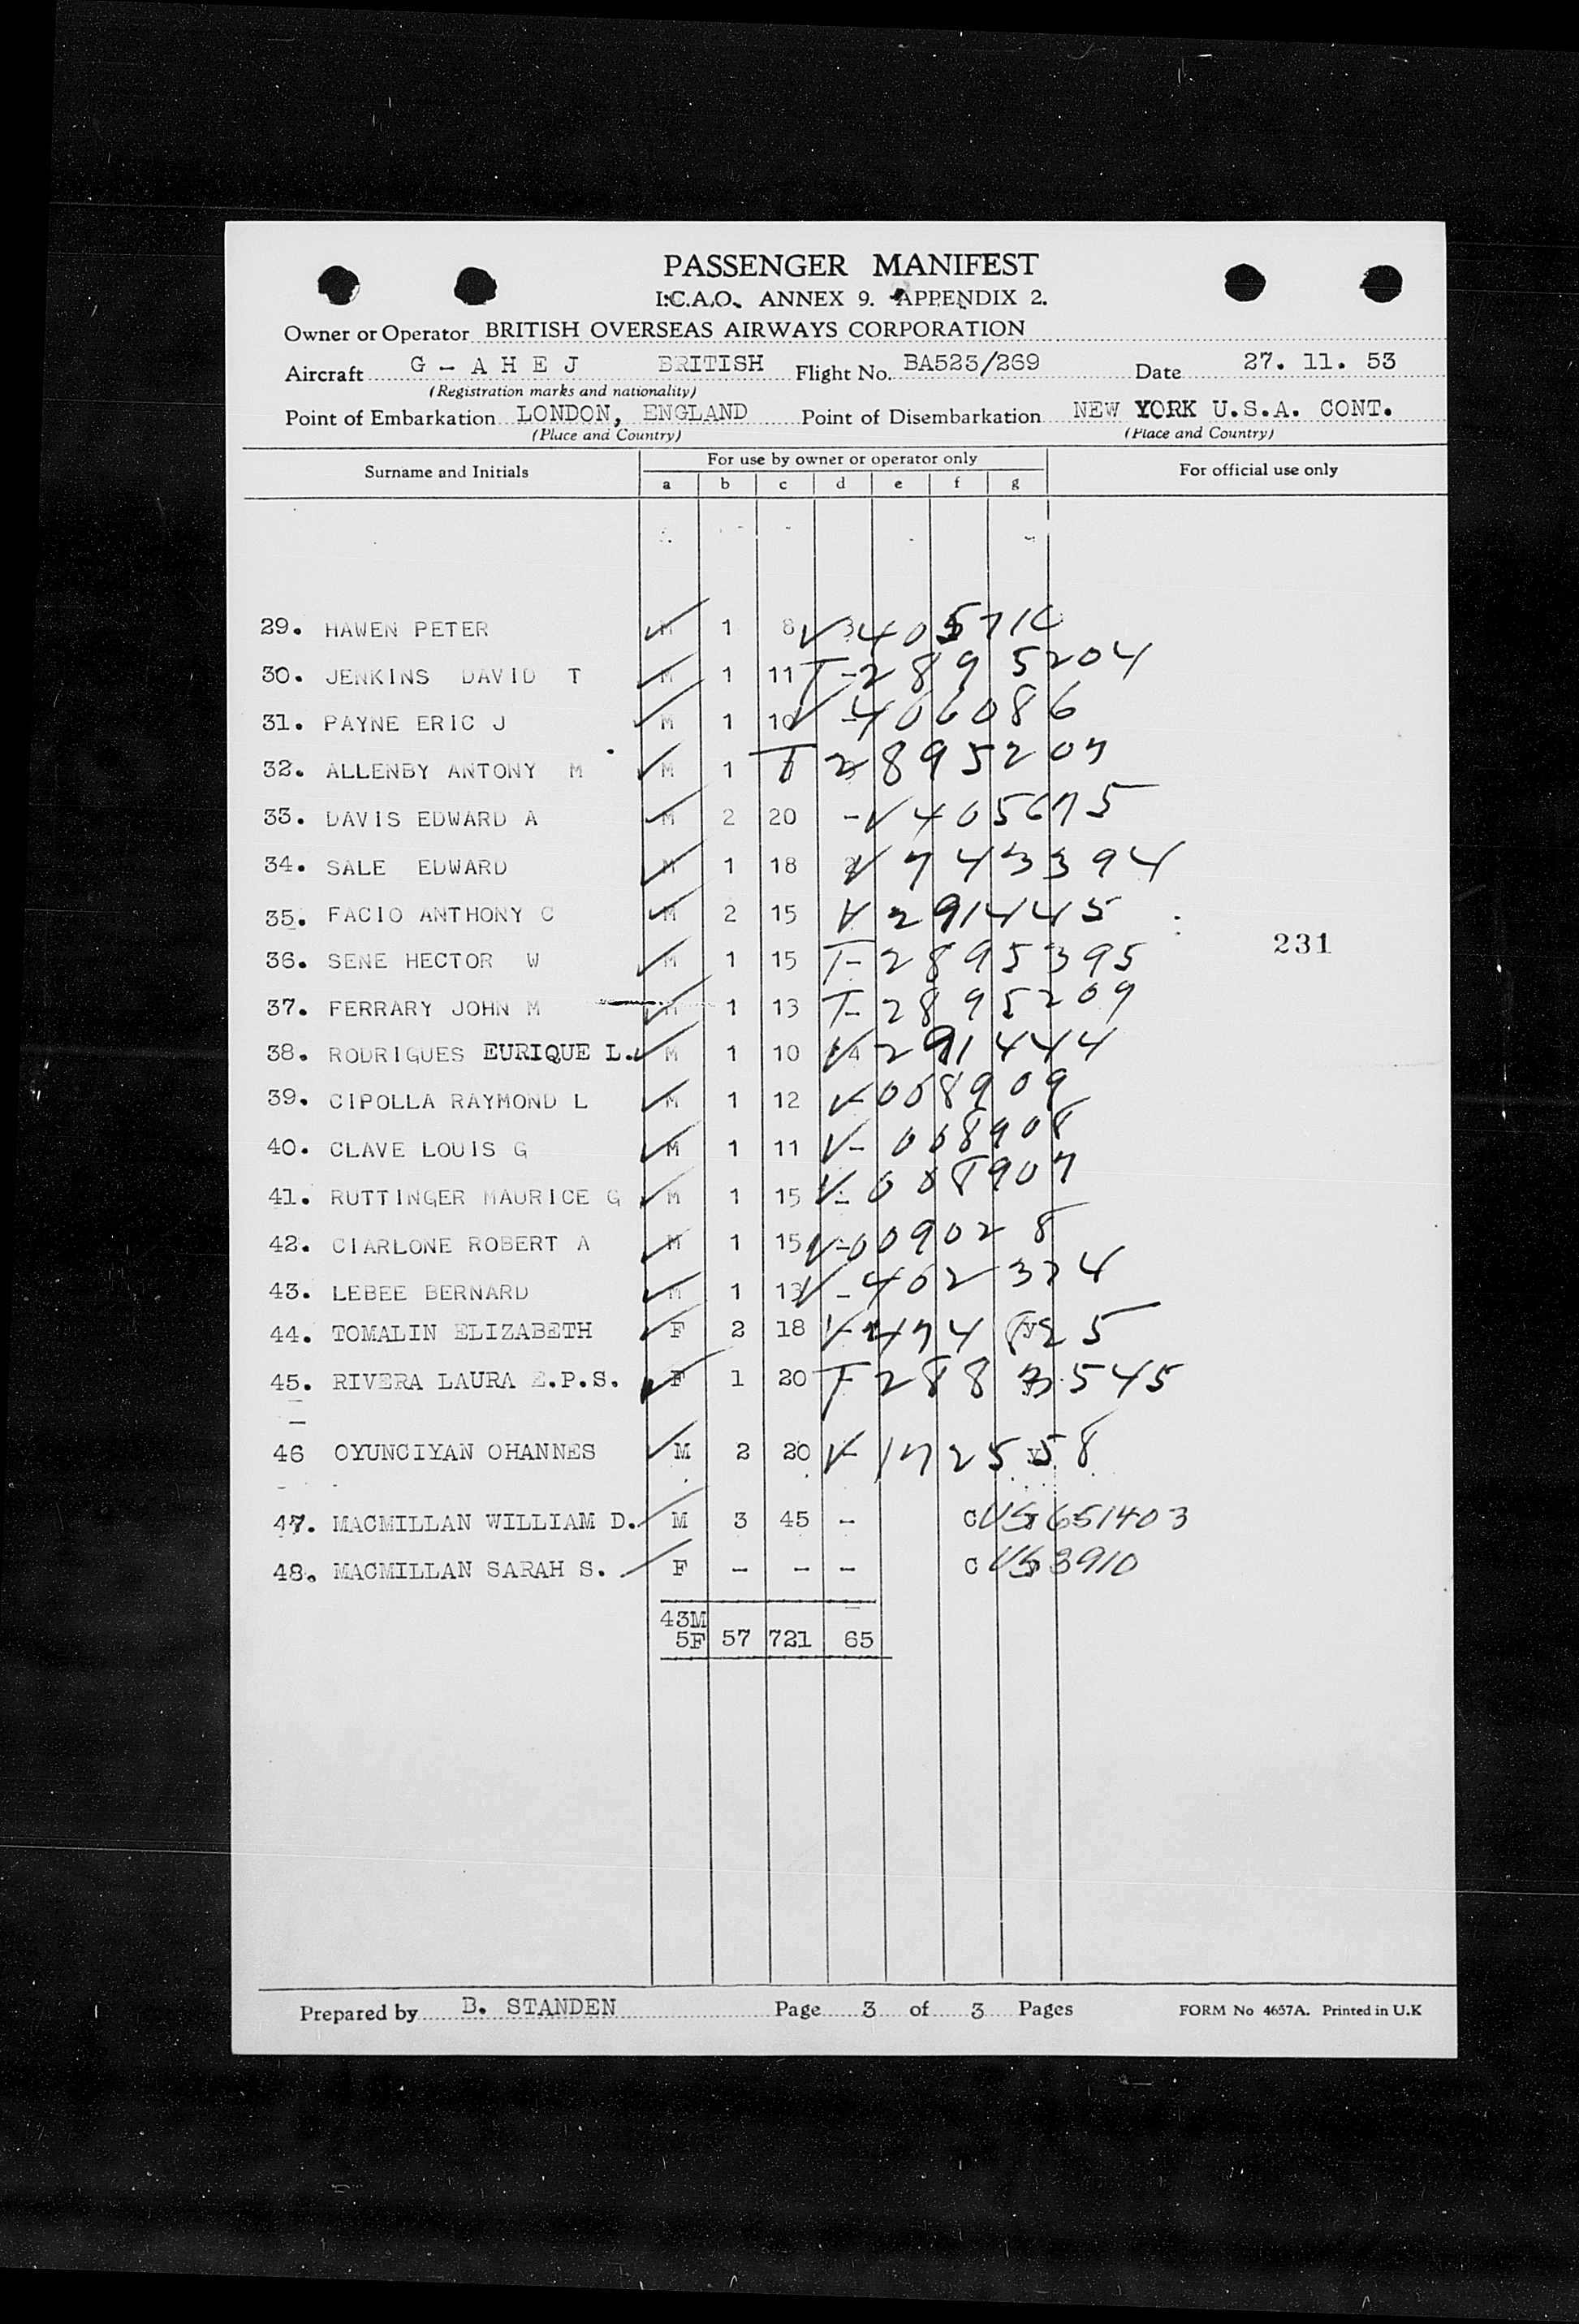 PASSENGER MANIFEST
I.C.A.O. ANNEX 9. APPENDIX 2.
Owner or Operator BRITISH OVERSEAS AIRWAYS CORPORATION
Aircraft G - A H E J BRITISH Flight No. BA525/269 Date 27. 11. 53
(Registration marks and nationality)
Point of Embarkation LONDON, ENGLAND Point of Disembarkation NEW YORK U.S.A. CONT.
(Place and Country) (Place and Country)
Surname and Initials For use by owner or operator only For official use only
a b c d e f g
29. HAWEN PETER M 1 8
30. JENKINS DAVID T M 1 11 T-2895204
31. PAYNE ERIC J M 1 10 V-406086
32. ALLENBY ANTONY M M 1 T 2895207
33. DAVIS EDWARD A M 2 20 -V 405675
34. SALE EDWARD M 1 18 V 743394
35. FACIO ANTHONY C M 2 15 V 2914445
231
36. SENE HECTOR W M 1 15 T-2895395
37. FERRARY JOHN M M 1 13 T-2895209
38. RODRIGUES EURIQUE L. M 1 10 V 2911444
39. CIPOLLA RAYMOND L M 1 12 V-008909
40. CLAVE LOUIS G M 1 11 V-008908
41. RUTTINGER MAURICE G M 1 15 V-008907
42. CIARLONE ROBERT A M 1 15 V-009028
43. LEBEE BERNARD M 1 13 V-402324
44. TOMALIN ELIZABETH F 2 18
45. RIVERA LAURA E.P.S. F 1 20 T-2883545
46 OYUNCIYAN OHANNES M 2 20 V-1725558
47. MACMILLAN WILLIAM D. M 3 45 - C US 651403
48. MACMILLAN SARAH S. F - - - C US 3910
43M
5F 57 721 65
Prepared by B. STANDEN Page 3 of 3 Pages FORM No 4657A. Printed in U.K